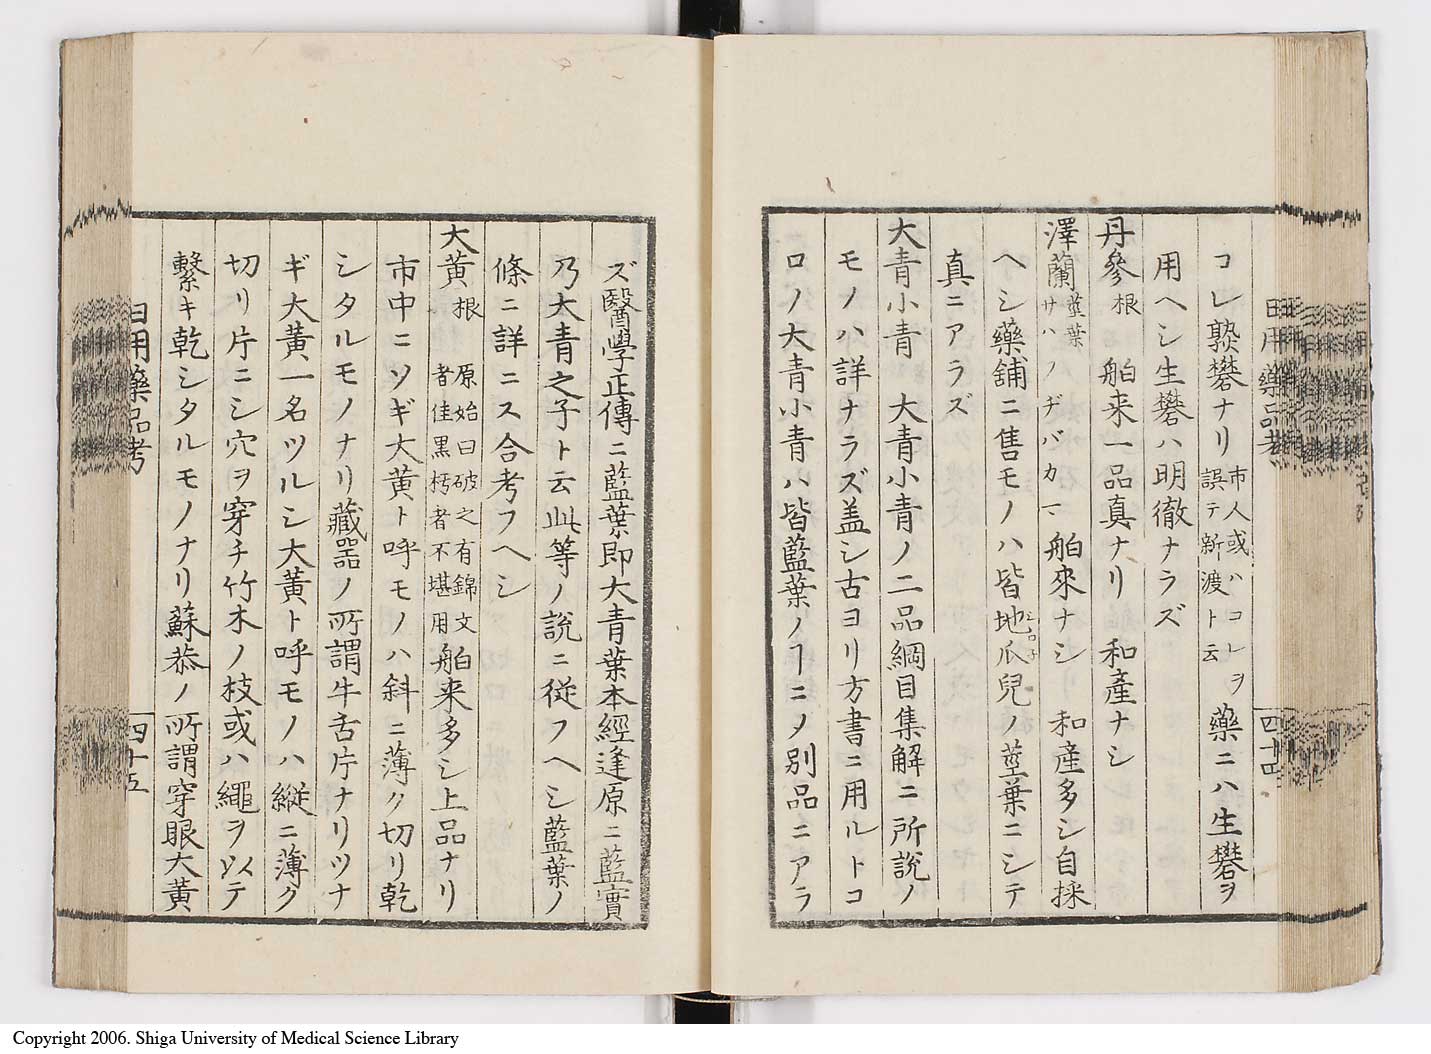 コレ熟礬ナリ 市人或ハコレヲ誤テ新渡ト云 藥ニハ生礬ヲ
用ヘシ生礬ハ明徹ナラズ
丹參 根 舶来一品真ナリ 和產ナシ
澤蘭 莖葉 サハノヂバカマ 舶來ナシ 和產多シ自採
ヘシ藥舖ニ售モノハ皆地瓜兒ノ莖葉ニシテ
真ニアラズ
大青小青 大青小青ノ二品綱目集解ニ所說ノ
モノハ詳ナラズ盖シ古ヨリ方書ニ用ルトコ
ロノ大青小青ハ皆藍葉ノヿニメ別品ニアラ
日用藥品考
四十四
ズ醫學正傳ニ藍葉即大青葉本經逢原ニ藍實
乃大青之子ト云此等ノ說ニ従フヘシ藍葉ノ
條ニ詳ニス合考フヘシ
大黄 根 原始曰破之有錦文者佳黑朽者不堪用 舶来多シ上品ナリ
市中ニソギ大黄ト呼モノハ斜ニ薄ク切リ乾
シタルモノナリ藏器ノ所謂牛舌片ナリツナ
ギ大黄一名ツルシ大黄ト呼モノハ縱ニ薄ク
切リ片ニシ穴ヲ穿チ竹木ノ枝或ハ繩ヲ以テ
繫キ乾シタルモノナリ蘇恭ノ所謂穿眼大黄
日用藥品考
四十五
Copyright 2006. Shiga University of Medical Science Library